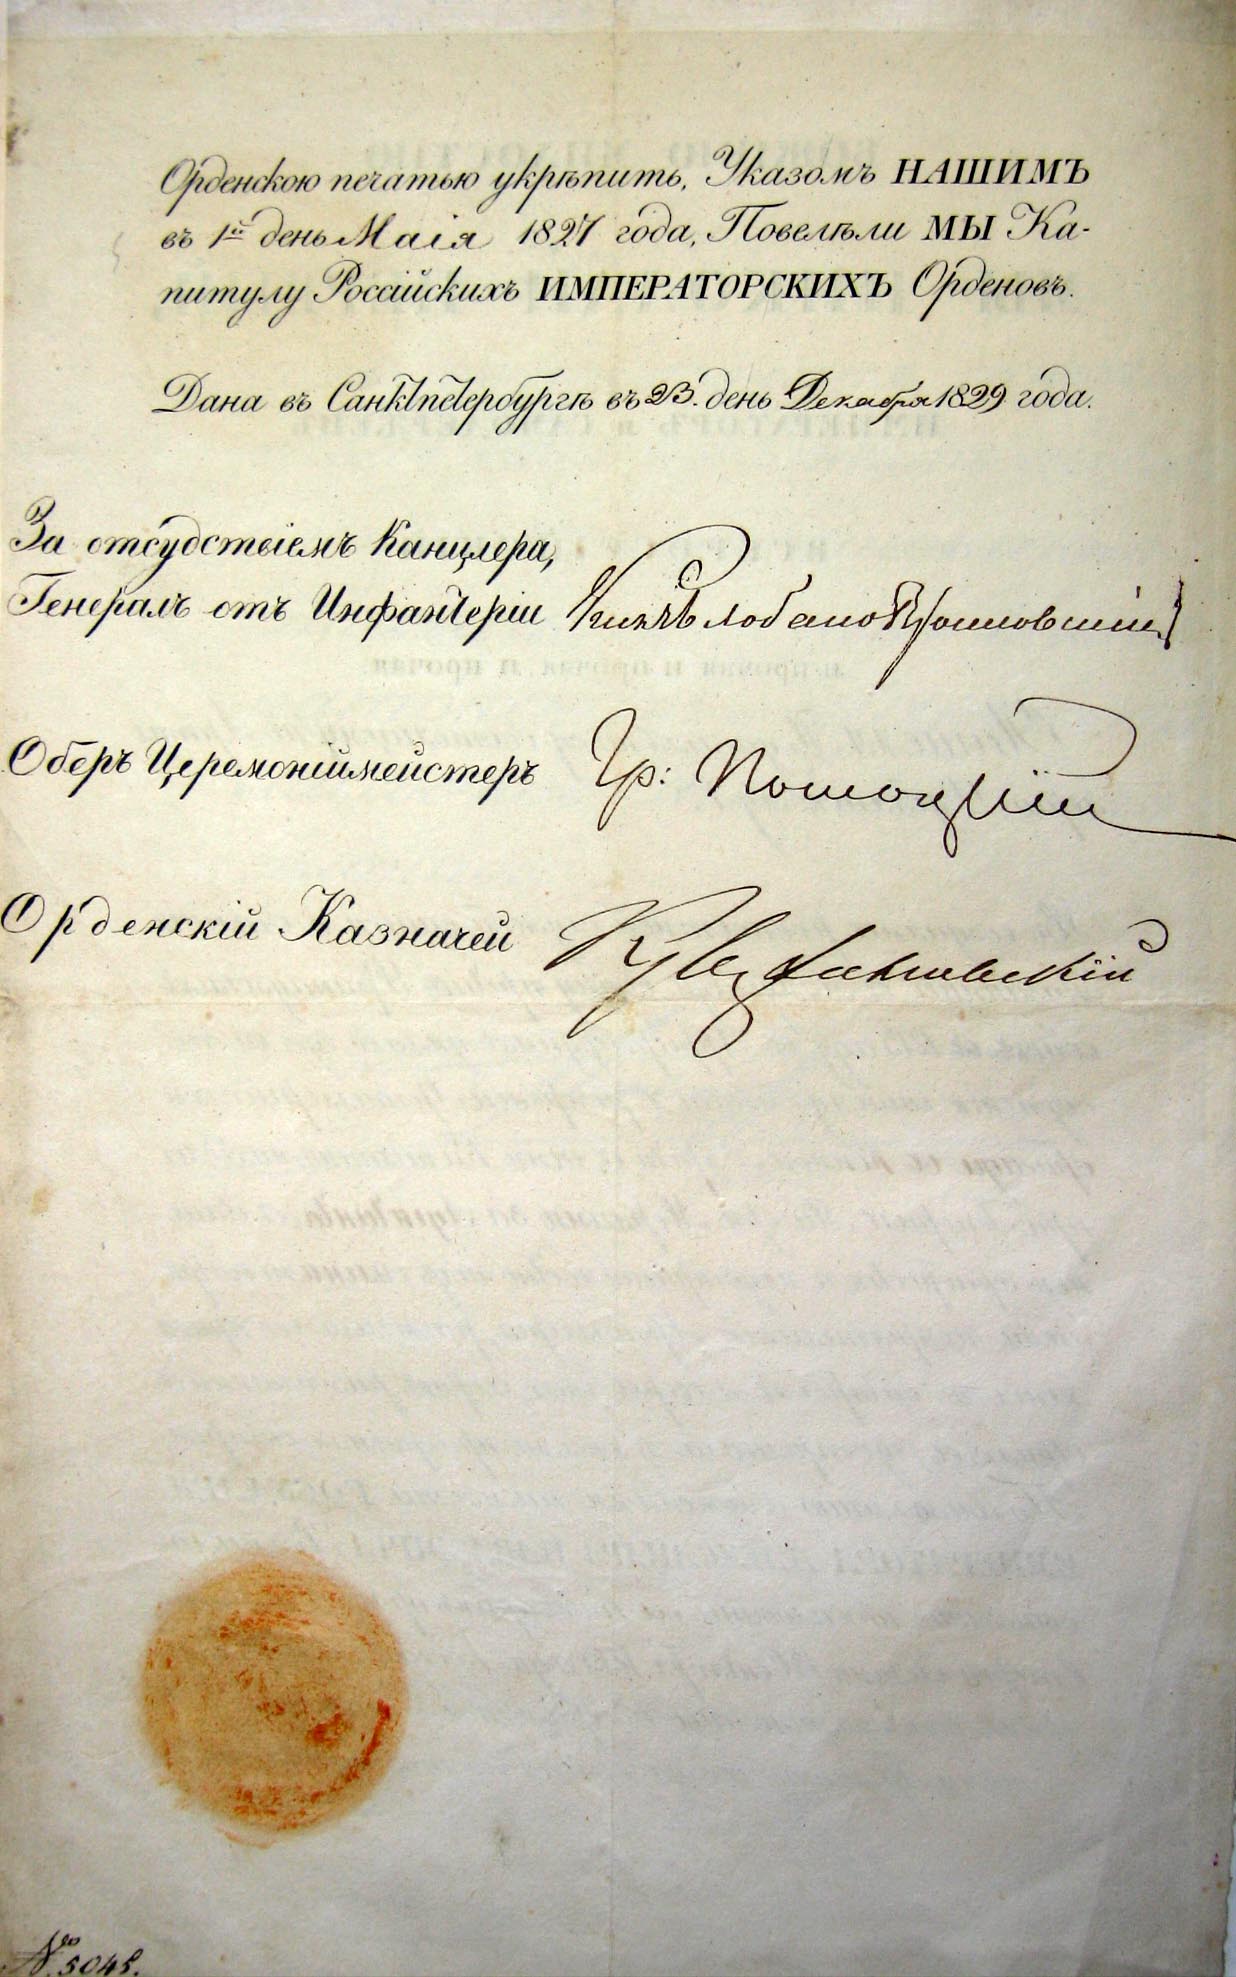 Орденскою печатью укрѣпить, Указомъ НАШИМЪ
въ 1й день Маія 1827 года, Повелѣли МЫ Ка-
питулу Россійскихъ ИМПЕРАТОРСКИХЪ Орденовъ.
Дана въ Санктпетербургѣ въ 23. день Декабря 1829 года.
За отсудствіемъ Канцлера,
Генералъ отъ Инфантеріи Князь Лобановъ Ростовскій
Оберъ Церемоніймейстеръ Гр: Потоцкій
Орденскій Казначей
№ 5045.